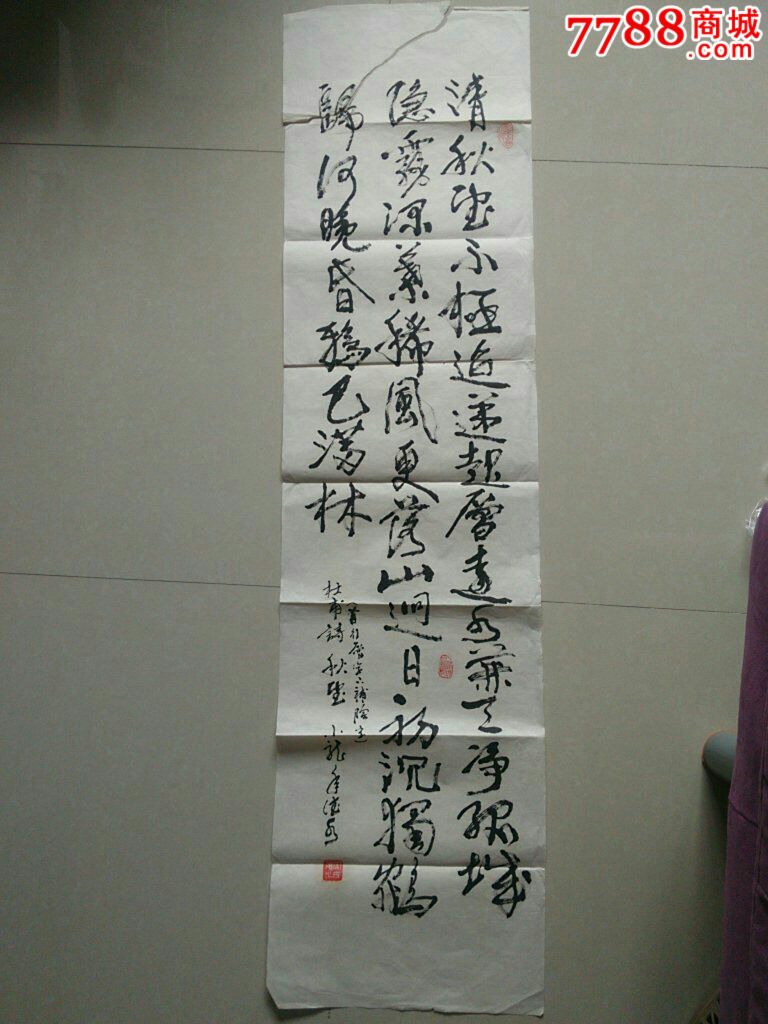 7788商城
.com
清秋望不極迢遞起層遠水兼天净孤城
隐霧深葉稀風更落山迥日初沉獨鶴
歸何晚昏鴉已满林
首行層字下補陰
杜甫詩 秋望 小龍年